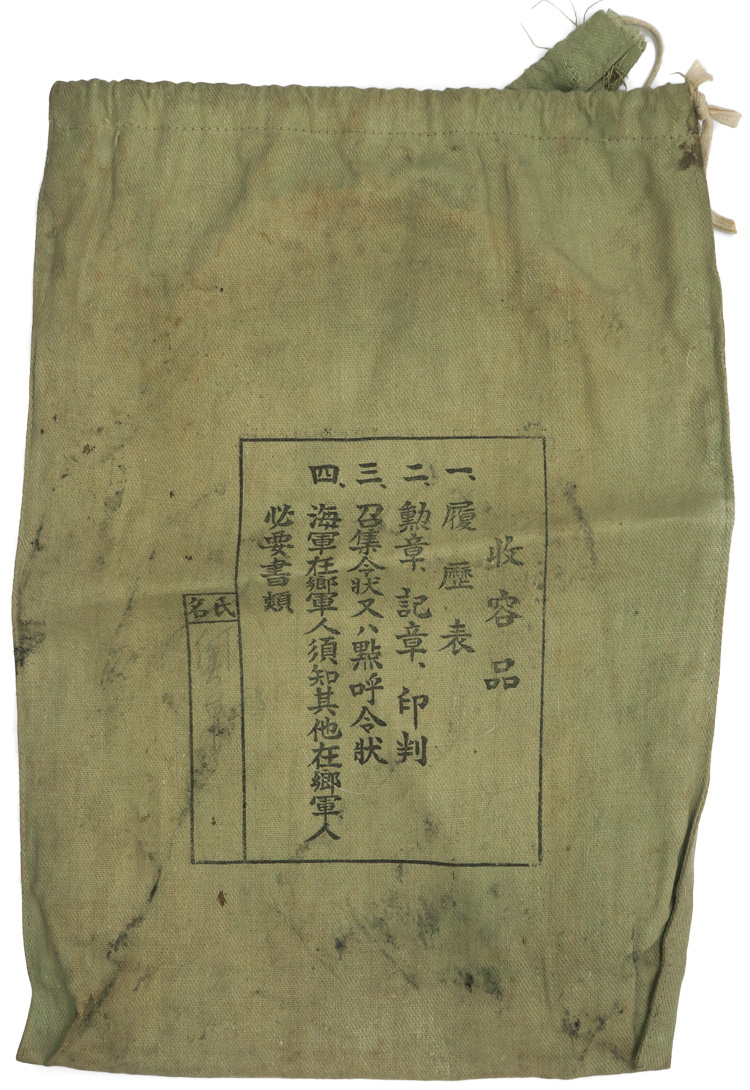 收容品
一、履歷表
二、勲章、記章、印判
三、召集令狀又ハ點呼令狀
四、海軍在鄉軍人須知其他在鄉軍人
必要書類
氏名